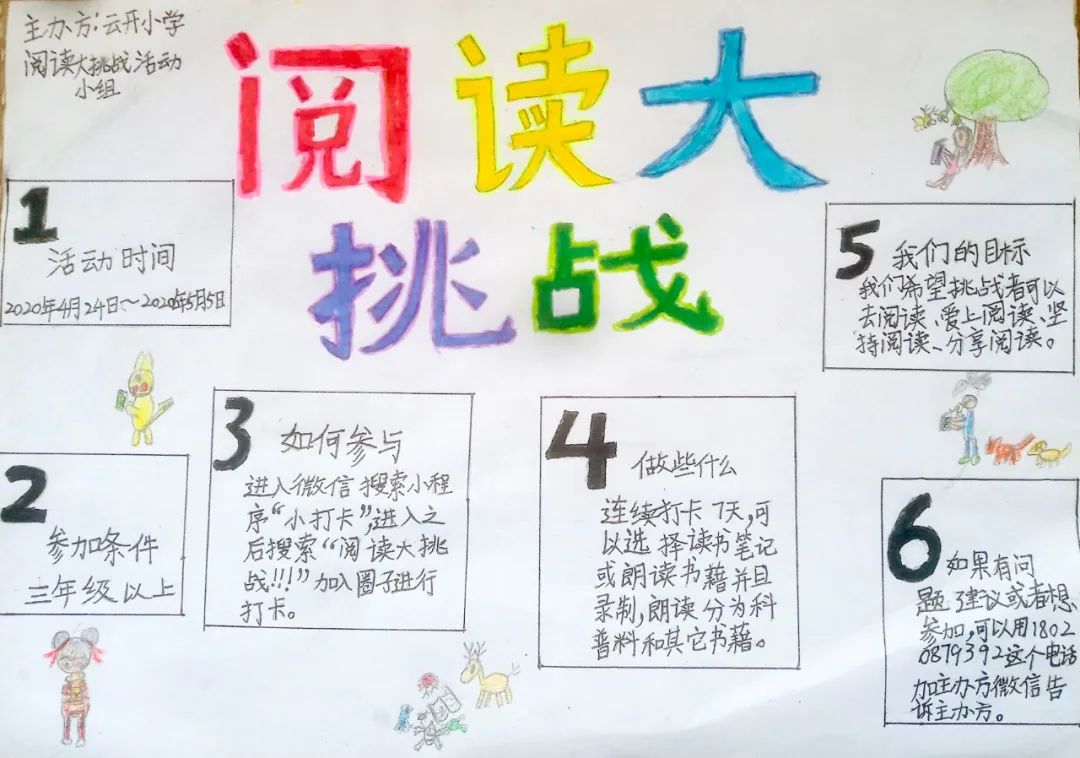 主办方:云开小学
阅读大挑战活动
小组
阅读大
挑战
1
活动时间
2020年4月24日～2020年5月5日
2
参加条件
三年级以上
3 如何参与
进入微信搜索小程
序“小打卡”,进入之
后搜索“阅读大挑
战!!!”加入圈子进行
打卡。
4 做些什么
连续打卡7天,可
以选择读书笔记
或朗读书籍并且
录制,朗读分为科
普料和其它书籍。
5 我们的目标
我们希望挑战者可以
去阅读、爱上阅读、坚
持阅读、分享阅读。
6 如果有问
题建议或者想
参加,可以用1802
0879392这个电话
加主办方微信告
诉主办方。